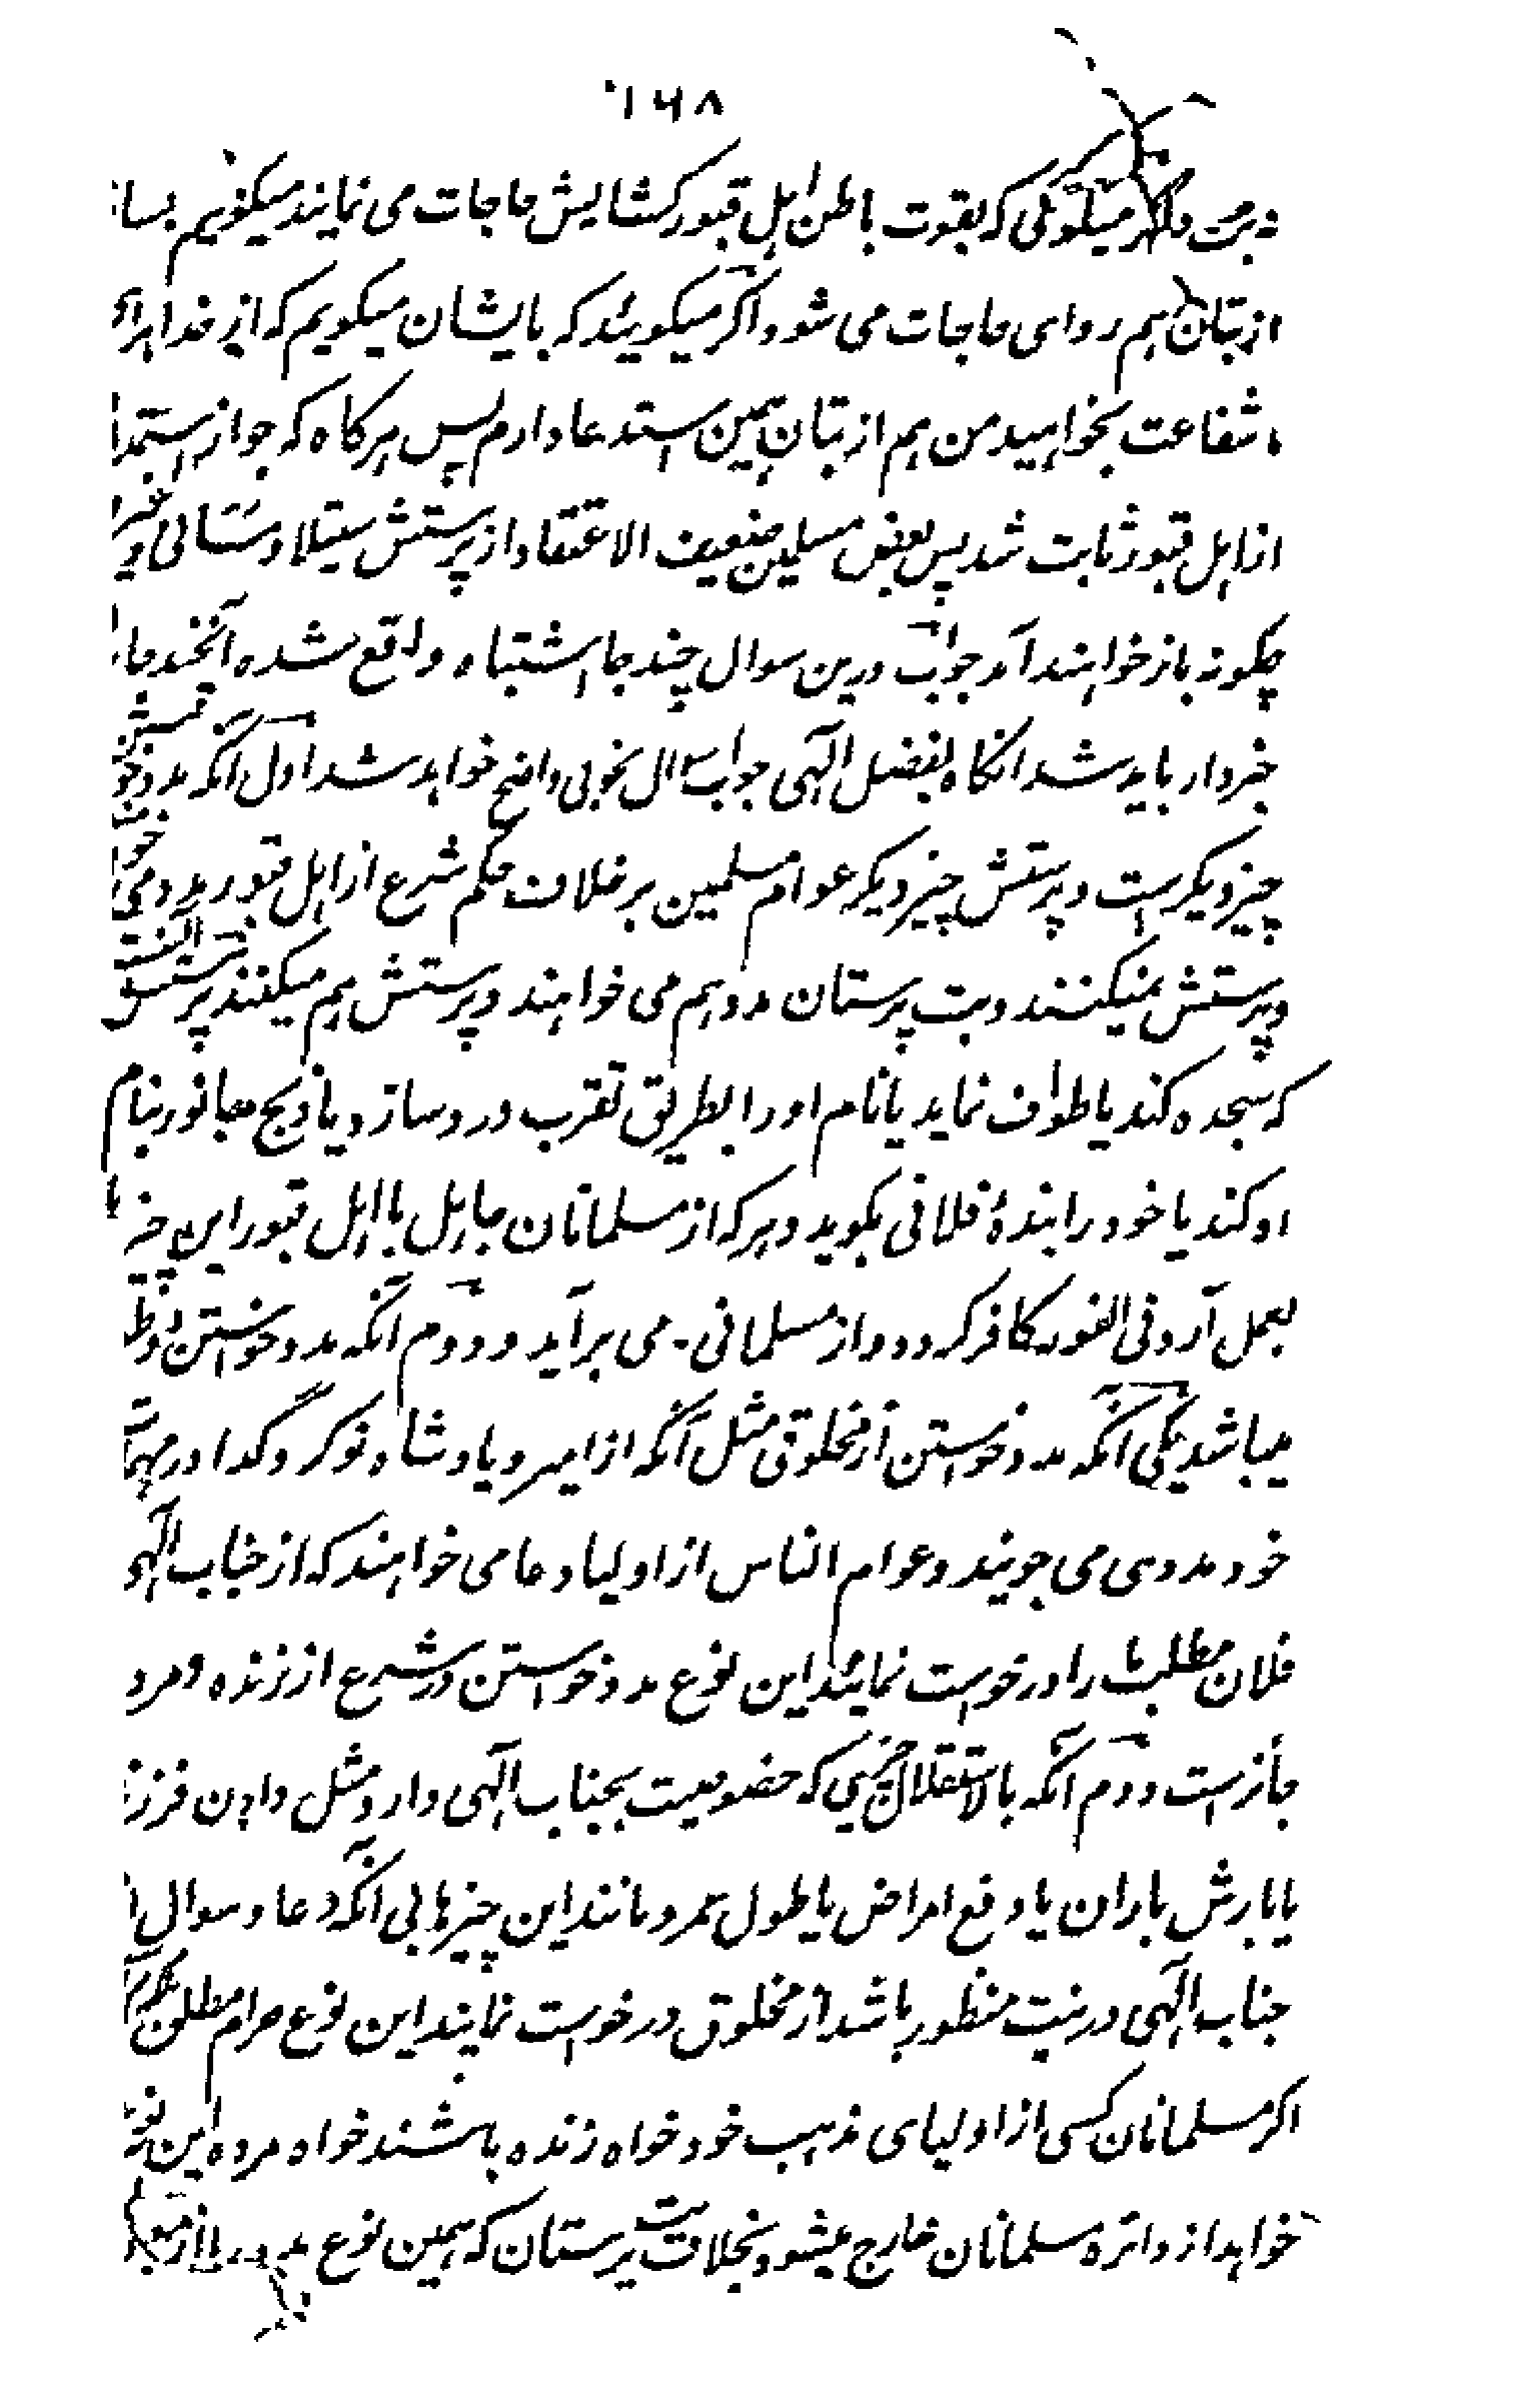 ۱۶۸
میگوئی که بقوت باطن اہل قبور کشایش حاجات می نمایند میگوئیم بسا
از بتان ہم روای حاجات می شود و اگر میگویند که بایشان میگویم که از خدا برای
شفاعت بخواہید من ہم از بتان ہمین استدعا دارم پس ہرگاه که جواز استمداد
از اہل قبور ثابت شد پس بعض مسلمین ضعیف الاعتقاد از پرستش سیتلا و مسانی وغیره
چگونه باز خواہند آمد جواب درین سوال چند جا اشتباه واقع شده آنچند جا
خبردار باید شد انگاه بفضل الہی جواب سوال بخوبی واضح خواہد شد اول آنکه مدد خواستن
چیز دیگرست و پرستش چیز دیگر عوام مسلمین برخلاف حکم شرع از اہل قبور مدد می خواہند
و پرستش نمیکنند و بت پرستان مدد ہم می خواہند و پرستش ہم میکنند پرستش آنست
که سجده کند یا طواف نماید یا نام اورا بطریق تقرب ورد سازد یا ذبح جانور بنام
او کند یا خود را بندۀ فلانی بگوید و ہرکه از مسلمانان جاہل با اہل قبور این چیزہا
بعمل آرد فی الفور کافر گردد و از مسلمانی می برآید و دوم آنکه مدد خواستن دو طور
میباشد یکی آنکه مدد خواستن از مخلوقی مثل آنکه از امیر و پادشاه نوکر و گدا در مہمات
خود مددی می جویند و عوام الناس از اولیا دعا می خواہند که از جناب الہی
فلان مطلب ما را درخواست نمایند این نوع مدد خواستن در شرع از زنده و مرده
جائزست دوم آنکه بالاستقلال چیزی که خصوصیت بجناب الہی دارد مثل دادن فرزند
یا بارش باران یا دفع امراض یا طول عمر و مانند این چیزہا بی آنکه دعا و سوال از
جناب الہی در نیت منظور باشد از مخلوق درخواست نمایند این نوع حرام مطلق
اگر مسلمانان کسی از اولیای مذہب خود خواه زنده باشند خواه مرده این نوع
خواہد از دائره مسلمانان خارج میشود بخلاف بت پرستان که ہمین نوع مدد را از